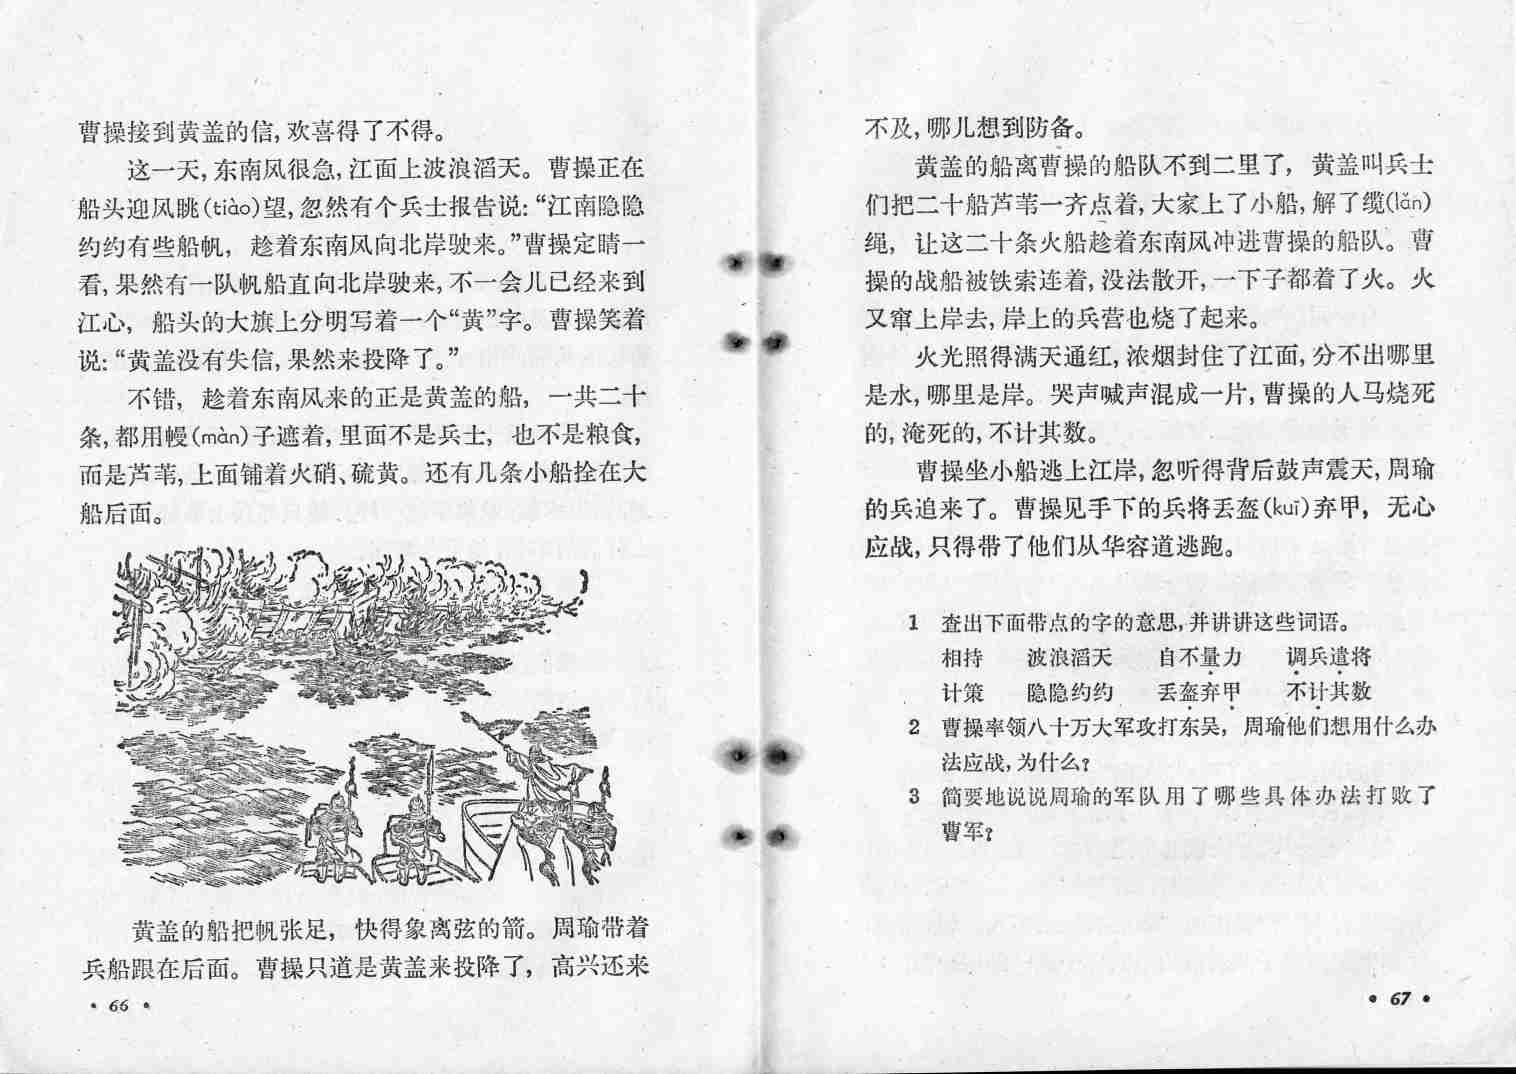 曹操接到黄盖的信,欢喜得了不得。
这一天,东南风很急,江面上波浪滔天。曹操正在
船头迎风眺(tiào)望,忽然有个兵士报告说:“江南隐隐
约约有些船帆，趁着东南风向北岸驶来。”曹操定睛一
看,果然有一队帆船直向北岸驶来,不一会儿已经来到
江心，船头的大旗上分明写着一个“黄”字。曹操笑着
说:“黄盖没有失信,果然来投降了。”
不错，趁着东南风来的正是黄盖的船，一共二十
条,都用幔(màn)子遮着,里面不是兵士，也不是粮食,
而是芦苇,上面铺着火硝、硫黄。还有几条小船拴在大
船后面。
黄盖的船把帆张足，快得象离弦的箭。周瑜带着
兵船跟在后面。曹操只道是黄盖来投降了，高兴还来
• 66 •
不及,哪儿想到防备。
黄盖的船离曹操的船队不到二里了，黄盖叫兵士
们把二十船芦苇一齐点着,大家上了小船,解了缆(lǎn)
绳，让这二十条火船趁着东南风冲进曹操的船队。曹
操的战船被铁索连着,没法散开,一下子都着了火。火
又窜上岸去,岸上的兵营也烧了起来。
火光照得满天通红,浓烟封住了江面,分不出哪里
是水,哪里是岸。哭声喊声混成一片,曹操的人马烧死
的,淹死的,不计其数。
曹操坐小船逃上江岸,忽听得背后鼓声震天,周瑜
的兵追来了。曹操见手下的兵将丢盔(kuī)弃甲，无心
应战,只得带了他们从华容道逃跑。
1 查出下面带点的字的意思,并讲讲这些词语。
相持 波浪滔天 自不量力 调兵遣将
计策 隐隐约约 丢盔弃甲 不计其数
2 曹操率领八十万大军攻打东吴，周瑜他们想用什么办
法应战,为什么?
3 简要地说说周瑜的军队用了哪些具体办法打败了
曹军?
• 67 •